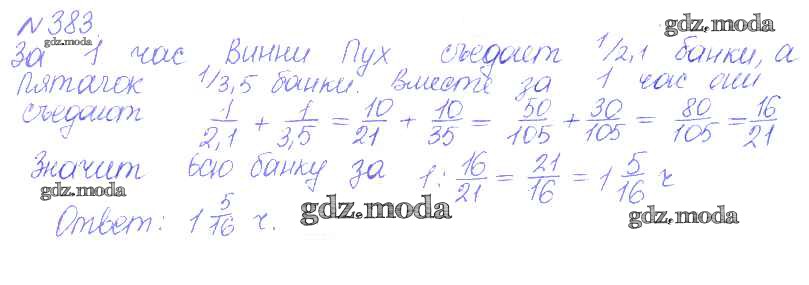 № 383.
gdz.moda
gdz.moda
За 1 час Винни Пух съедает 1/2,1 банки, а
Пятачок 1/3,5 банки. Вместе за 1 час они
съедают 1/2,1 + 1/3,5 = 10/21 + 10/35 = 50/105 + 30/105 = 80/105 = 16/21
Значит всю банку за 1 : 16/21 = 21/16 = 1 5/16 ч
gdz.moda
Ответ: 1 5/16 ч.
gdz.moda
gdz.moda